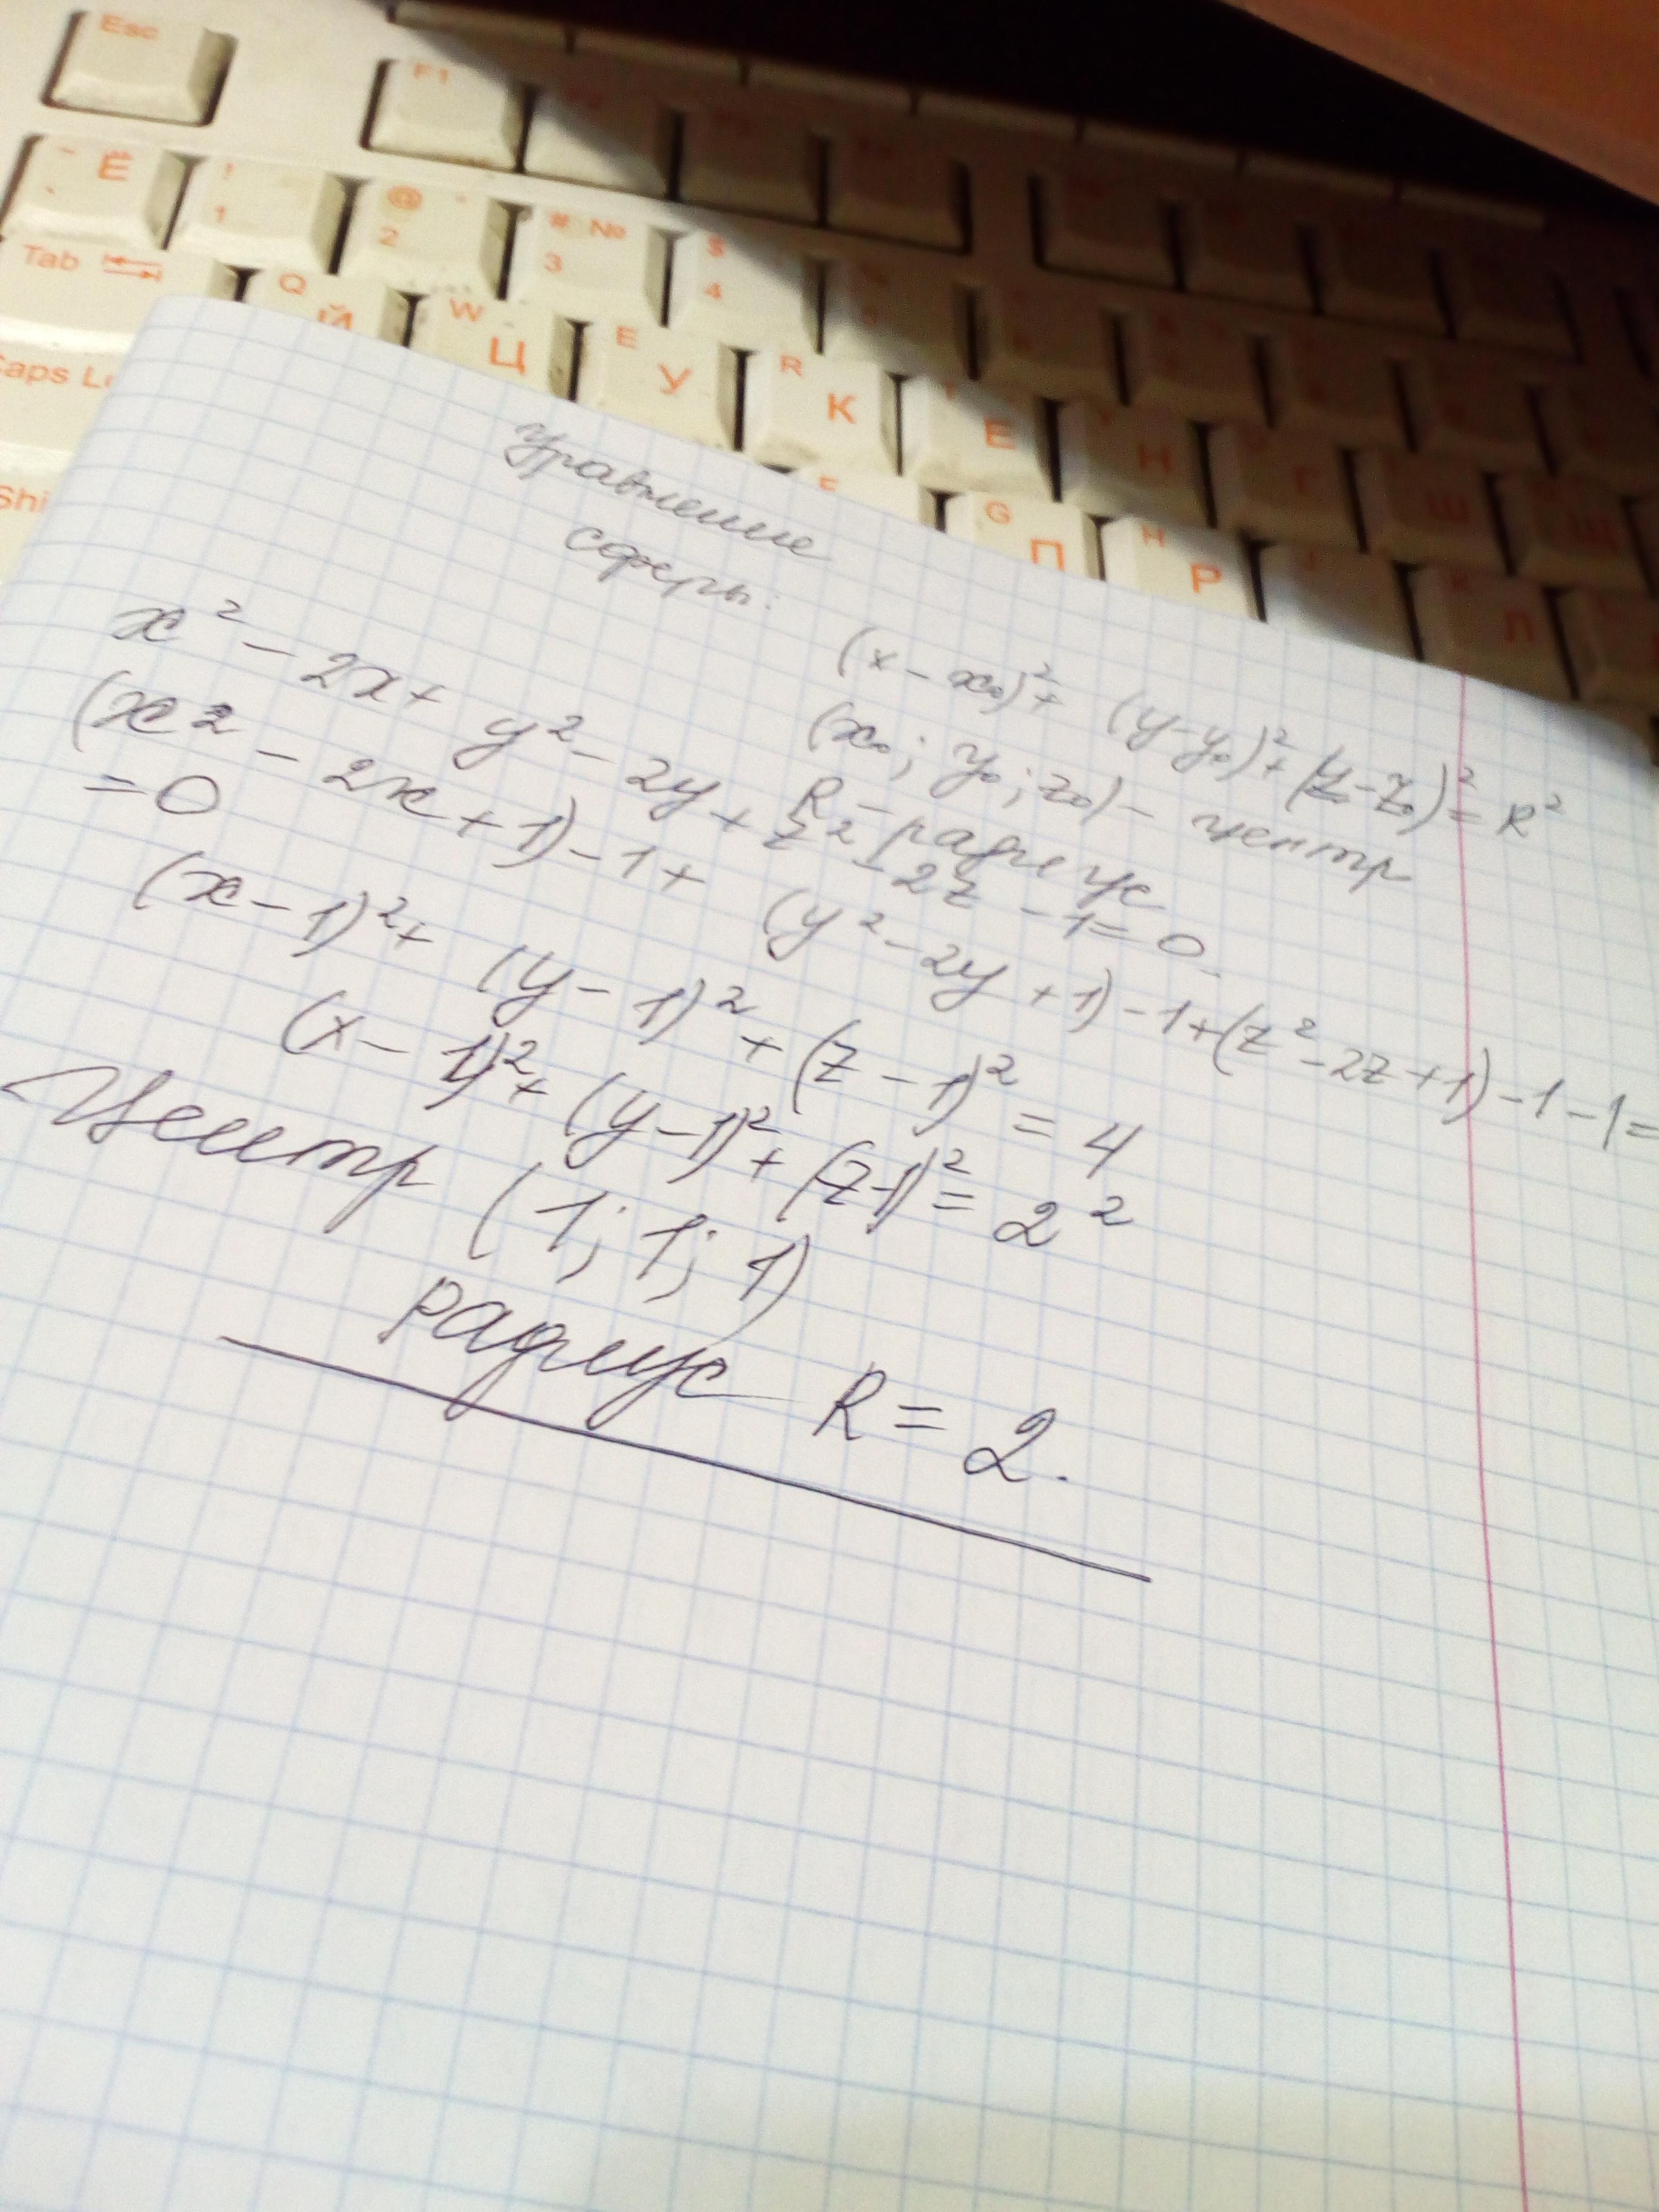 Esc
F1
~ Ё
! 1
@ " 2
# № 3
$ 4
Tab
Q Й
W Ц
E У
R К
Е
Н
Г
Ш
Caps L
F
G П
H Р
J
К Л
Shi
Уравнение
сферы:
(x - x₀)² + (y - y₀)² + (z - z₀)² = R²
(x₀; y₀; z₀) - центр
R - радиус
x² - 2x + y² - 2y + z² - 2z - 1 = 0.
(x² - 2x + 1) - 1 + (y² - 2y + 1) - 1 + (z² - 2z + 1) - 1 - 1 =
= 0
(x - 1)² + (y - 1)² + (z - 1)² = 4
(x - 1)² + (y - 1)² + (z - 1)² = 2²
Центр (1; 1; 1)
радиус R = 2.